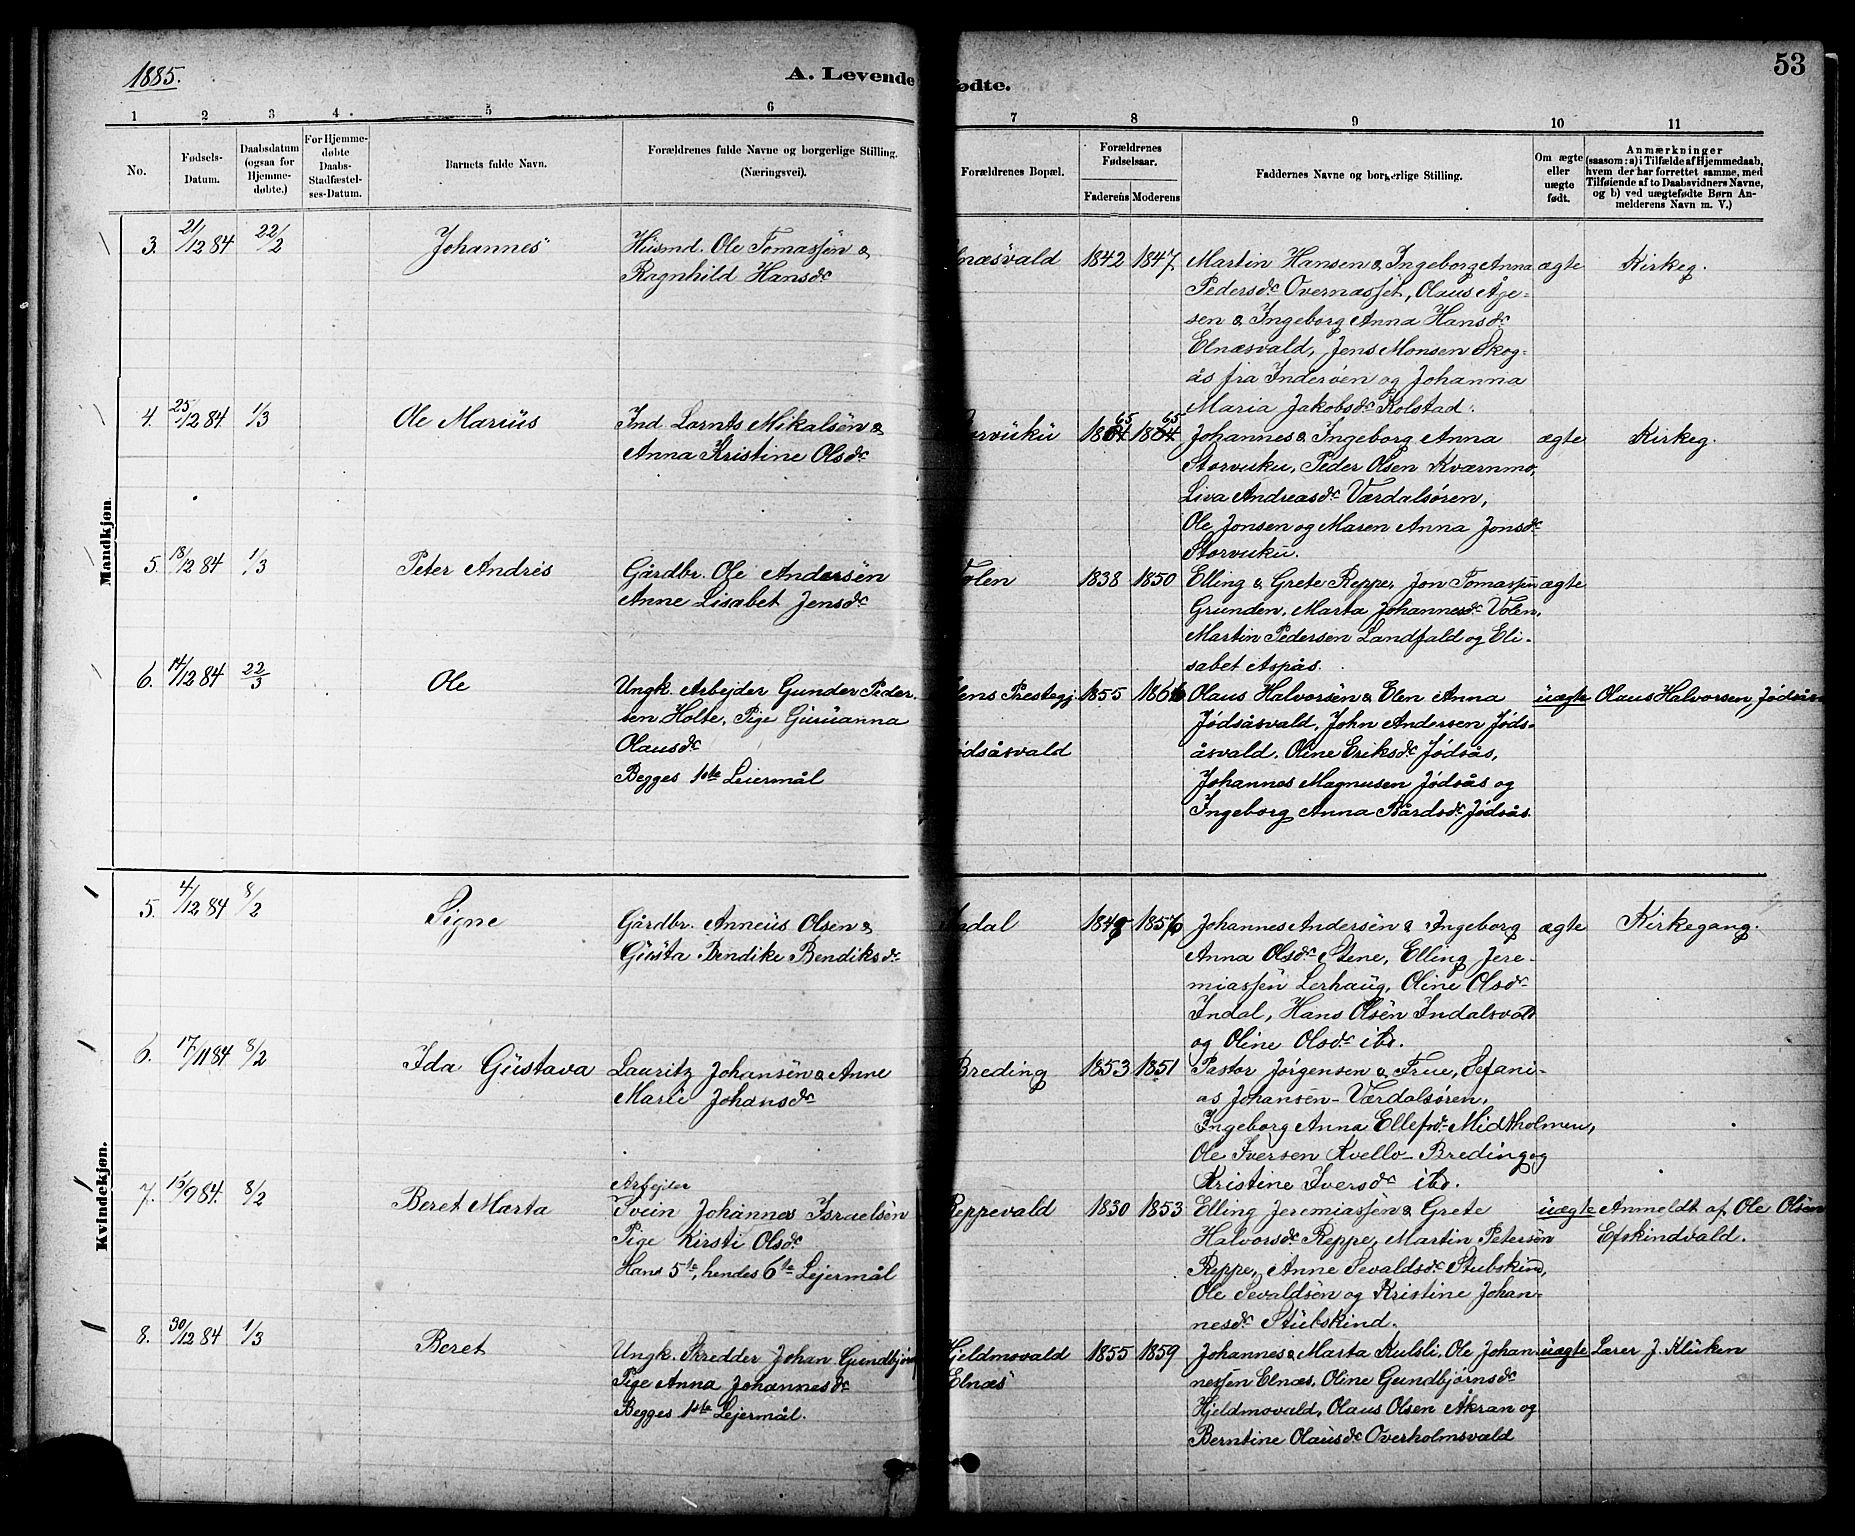 1885.
A. Levende
ødte.
53
1
2
3
4
5
6
7
8
9
10
11
No.
Fødsels-
Datum.
Daabsdatum
(ogsaa for
Hjemme-
døbte.)
For Hjemme-
døbte
Daabs-
Stadfæstel-
ses-Datum.
Barnets fulde Navn.
Forældrenes fulde Navne og borgerlige Stilling.
(Næringsvei).
Forældrenes Bopæl.
Forældrenes
Fødselsaar.
Faderens
Moderens
Faddernes Navne og borgerlige Stilling.
Om ægte
eller
uægte
født.
Anmærkninger
(saasom: a) i Tilfælde af Hjemmedaab,
hvem der har forrettet samme, med
Tilføiende af to Daabsvidners Navne,
og b) ved uægtefødte Børn An-
melderens Navn m. V.)
Mandkjøn.
3. 21/12 84 22/2 Johannes Husmd. Ole Tomassen &
Ragnhild Hansdr
lnæsvald 1842 1847 Martin Hansen & Ingeborg Anna ægte Kirkeg.
Pedersdr Overnæsset, Olaus Åge-
sen & Ingeborg Anna Hansdr
Elnæsvald, Jens Monsen Skog-
ås fra Inderøen og Johanna
Maria Jakobsdr Kolstad.
4. 25/12 84 1/3 Ole Marius Ind. Lornts Mikalsen &
Anna Kristine Olsdr
orvuku 1864 65 1864 65 Johannes & Ingeborg Anna ægte Kirkeg.
Storvuku, Peder Olsen Kværnmo,
Liva Andreasdr Værdalsøren,
Ole Jonsen og Maren Anna Jonsdr
Storvuku.
5. 18/12 84 1/3 Peter Andris Gårdbr. Ole Andersen
Anne Lisabet Jensdr
Volen 1838 1850 Elling & Grete Reppe, Jon Tomassen ægte
Grunden, Marta Johannesdr Volen,
Martin Pedersen Landfald og Eli-
sabet Aspås.
6. 14/12 84 22/3 Ole Ungk. Arbejder Gunder Peder-
sen Holte, Pige Guruanna
Olausdr
Begges 1ste Leiermål
lens Prestegj. 1855 1866 Olaus Halvorsen & Elen Anna uægte Olaus Halvorsen Jødsås-
Jødsåsvald, John Andersen Jøds-
ødsåsvald
åsvald, Oline Eriksdr Jødsås,
Johannes Magnusen Jødsås og
Ingeborg Anna Bårdsdr Jødsås.
Kvindekjøn.
5. 4/12 84 8/2 Signe Gårdbr. Anneus Olsen &
Gusta Bendike Bendiksdr
Indal 1848 1856 Johannes Andersen & Ingeborg ægte Kirkegang.
Anna Olsdr Stene, Elling Jere-
miassen Lerhaug, Oline Olsdr
Indal, Hans Olsen Indalsvald
og Oline Olsdr ibd.
6. 17/11 84 8/2 Ida Gustava Lauritz Johansen & Anne
Marie Johansdr
Breding 1853 1851 Pastor Jørgensen & Frue, Sefani-
as Johansen - Værdalsøren,
Ingeborg Anna Ellefsdr Midtholmen,
Ole Iversen Kvello - Breding og
Kristine Iversdr ibd.
7. 15/9 84. 8/2 Beret Marta Arbejder
Svein Johannes Israelsen
Pige Kirsti Olsdr
Hans 5te, hendes 6te Lejermål
Reppevald 1830 1853 Elling Jeremiassen & Grete uægte Anmeldt af Ole Olsen
Halvorsdr Reppe, Martin Petersen Efskindvald.
Reppe, Anne Sevaldsdr Stubskind,
Ole Sevaldsen og Kristine Johan-
nesdr Stubskind.
8. 30/12 84 1/3 Beret Ungk. Skredder Johan Gundbjørns
Pige Anna Johannesdr
Begges 1ste Lejermål.
Hjeldmovald 1855 1859 Johannes & Marta Kulsli, Ole Johan- uægte Lærer J. Kluken
Elnæs nessen Elnæs, Oline Gundbjørnsdr
Hjeldmovald, Olaus Olsen Åkran og
Berntine Olausdr Overholmsvald